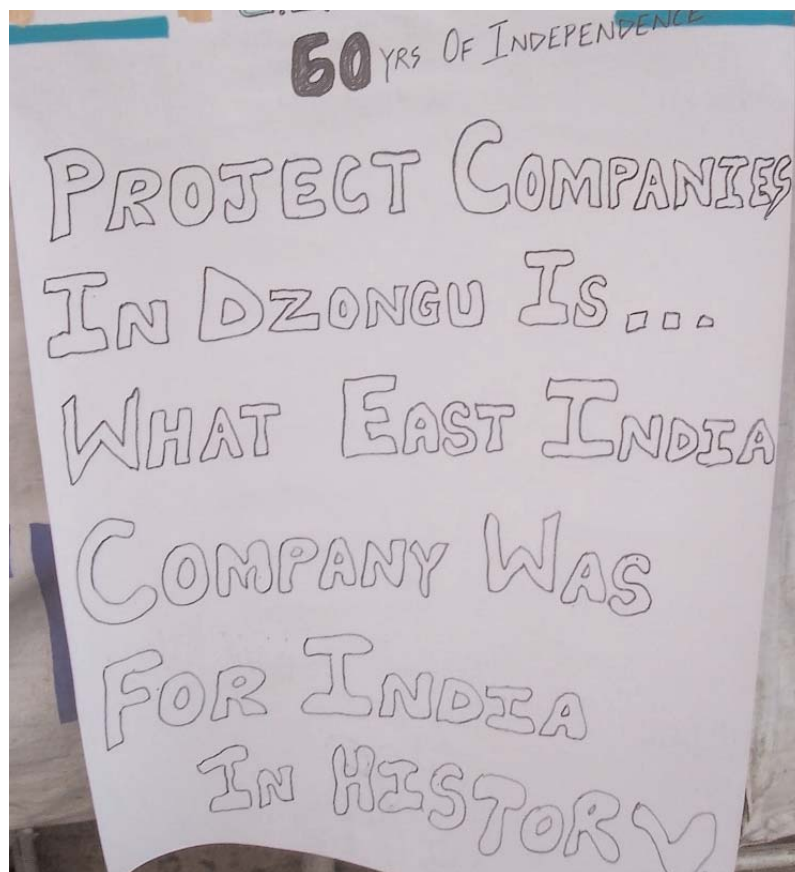 60 YRS OF INDEPENDENCE
PROJECT COMPANIES
IN DZONGU IS...
WHAT EAST INDIA
COMPANY WAS
FOR INDIA
IN HISTORY